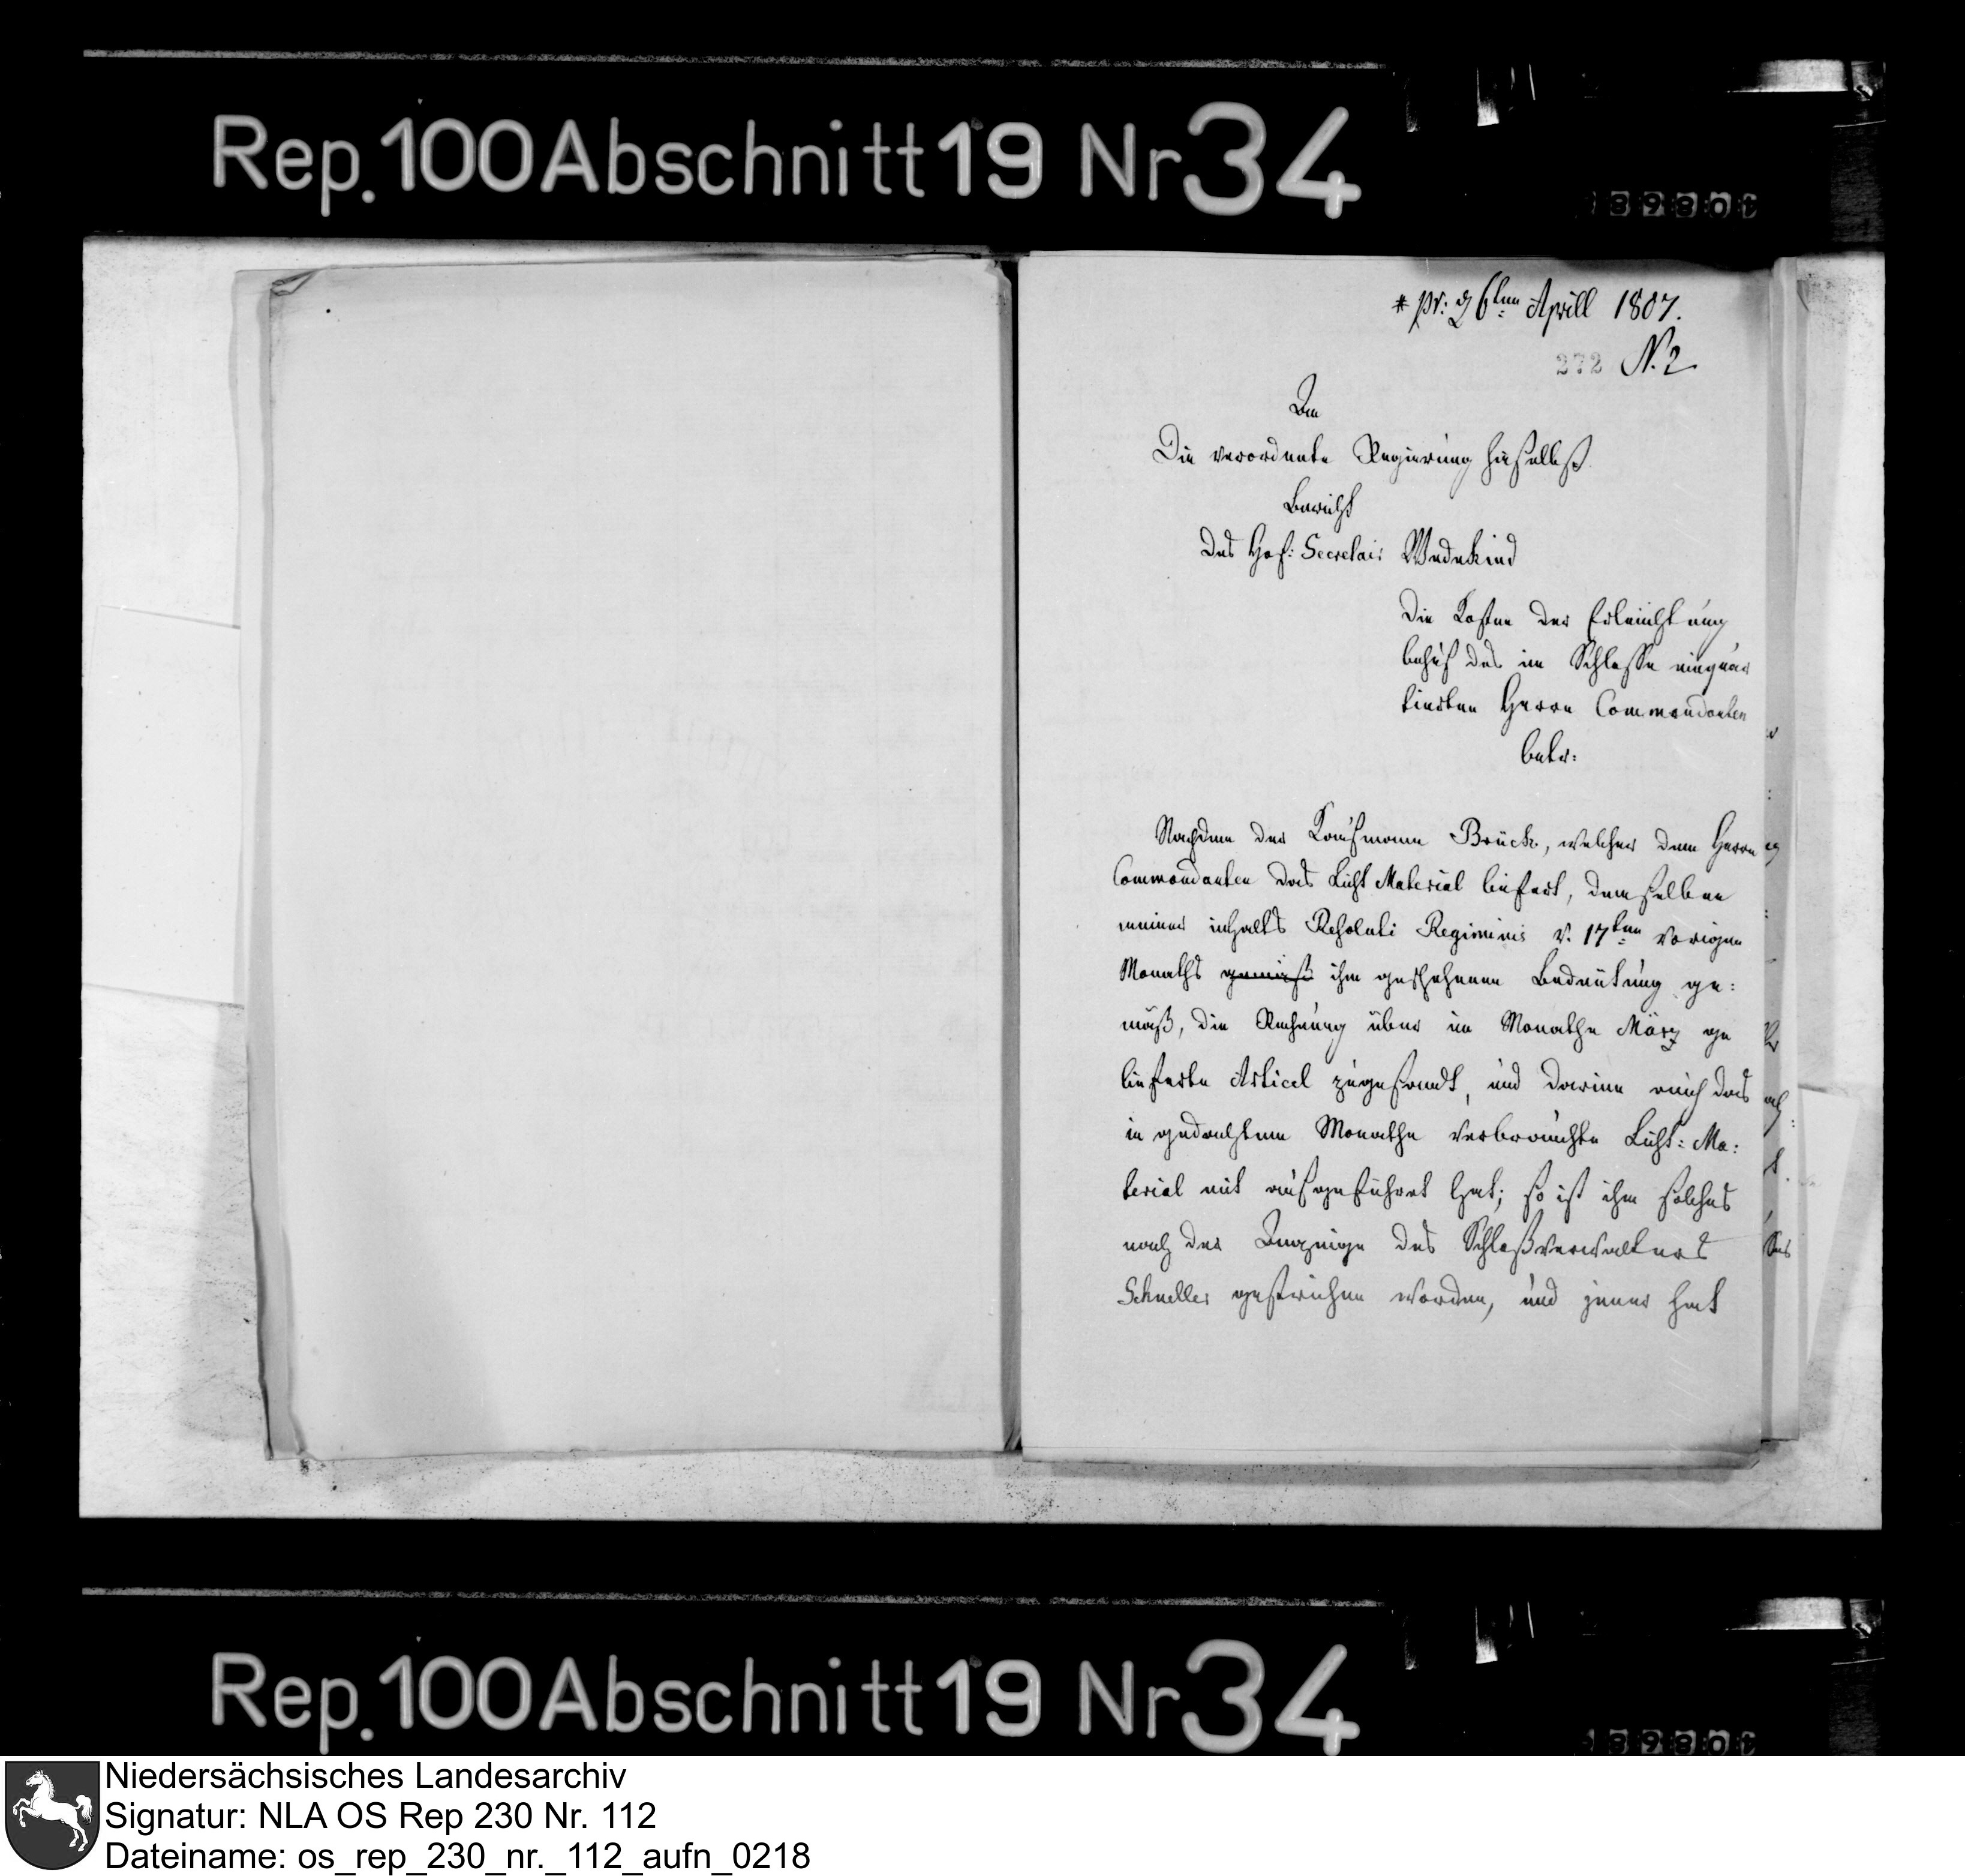 Rep. 100 Abschnitt 19 Nr 34
* pr: 26ten Aprill 1807.
272 N. 2
An
Die verordnete Regierung hieselbst
Bericht
des Hof: Secretair Wedekind
die Kosten der Erleuchtung
behuf des im Schlosse einquar
tierten Herrn Commendanten
betr:
Nachdem der Kaufmann Brück, welcher dem Herrn
Commandanten das Licht Material liefert, demselben
meiner inhalts Resoluti Regiminis v. 17ten vorigen
Monaths gemäß ihm geschehenen Bedeutung ge:
mäß, die Rechnung über im Monathe März ge
lieferte Articel zugesandt, und darinn auch das
in gedachtem Monathe verbrauchte Licht: Ma:
terial mit aufgeführet hat; so ist ihm solches
nach der Anzeige des Schloßverwalters
Schneller gestrichen worden, und jener hat
Rep. 100 Abschnitt 19 Nr 34
Niedersächsisches Landesarchiv
Signatur: NLA OS Rep 230 Nr. 112
Dateiname: os_rep_230_nr._112_aufn_0218